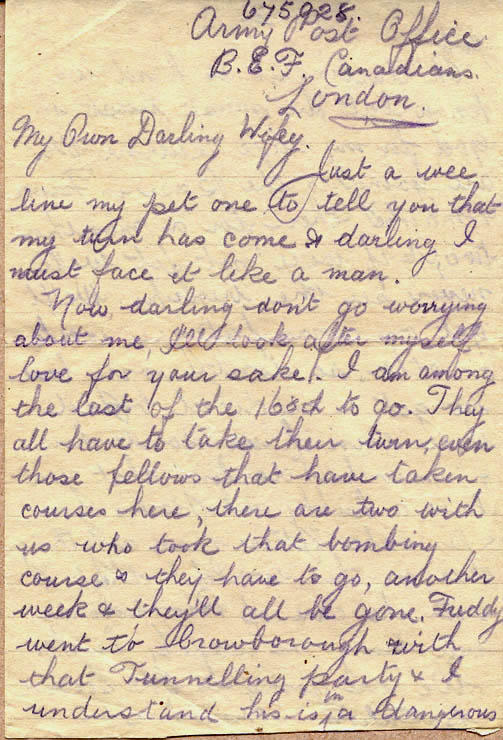 675928.
Army Post Office
B.E.F. Canadians.
London.
My Own Darling Wifey.
Just a wee
line my pet one to tell you that
my turn has come & darling I
must face it like a man.
Now darling don't go worrying
about me, I'll look after myself
love for your sake. I am among
the last of the 168th to go. They
all have to take their turn, even
those fellows that have taken
courses here, there are two with
us who took that bombing
course & they have to go, another
week & they'll all be gone. Freddy
went to Crowborough with
that Tunnelling party & I
understand his is in a dangerous